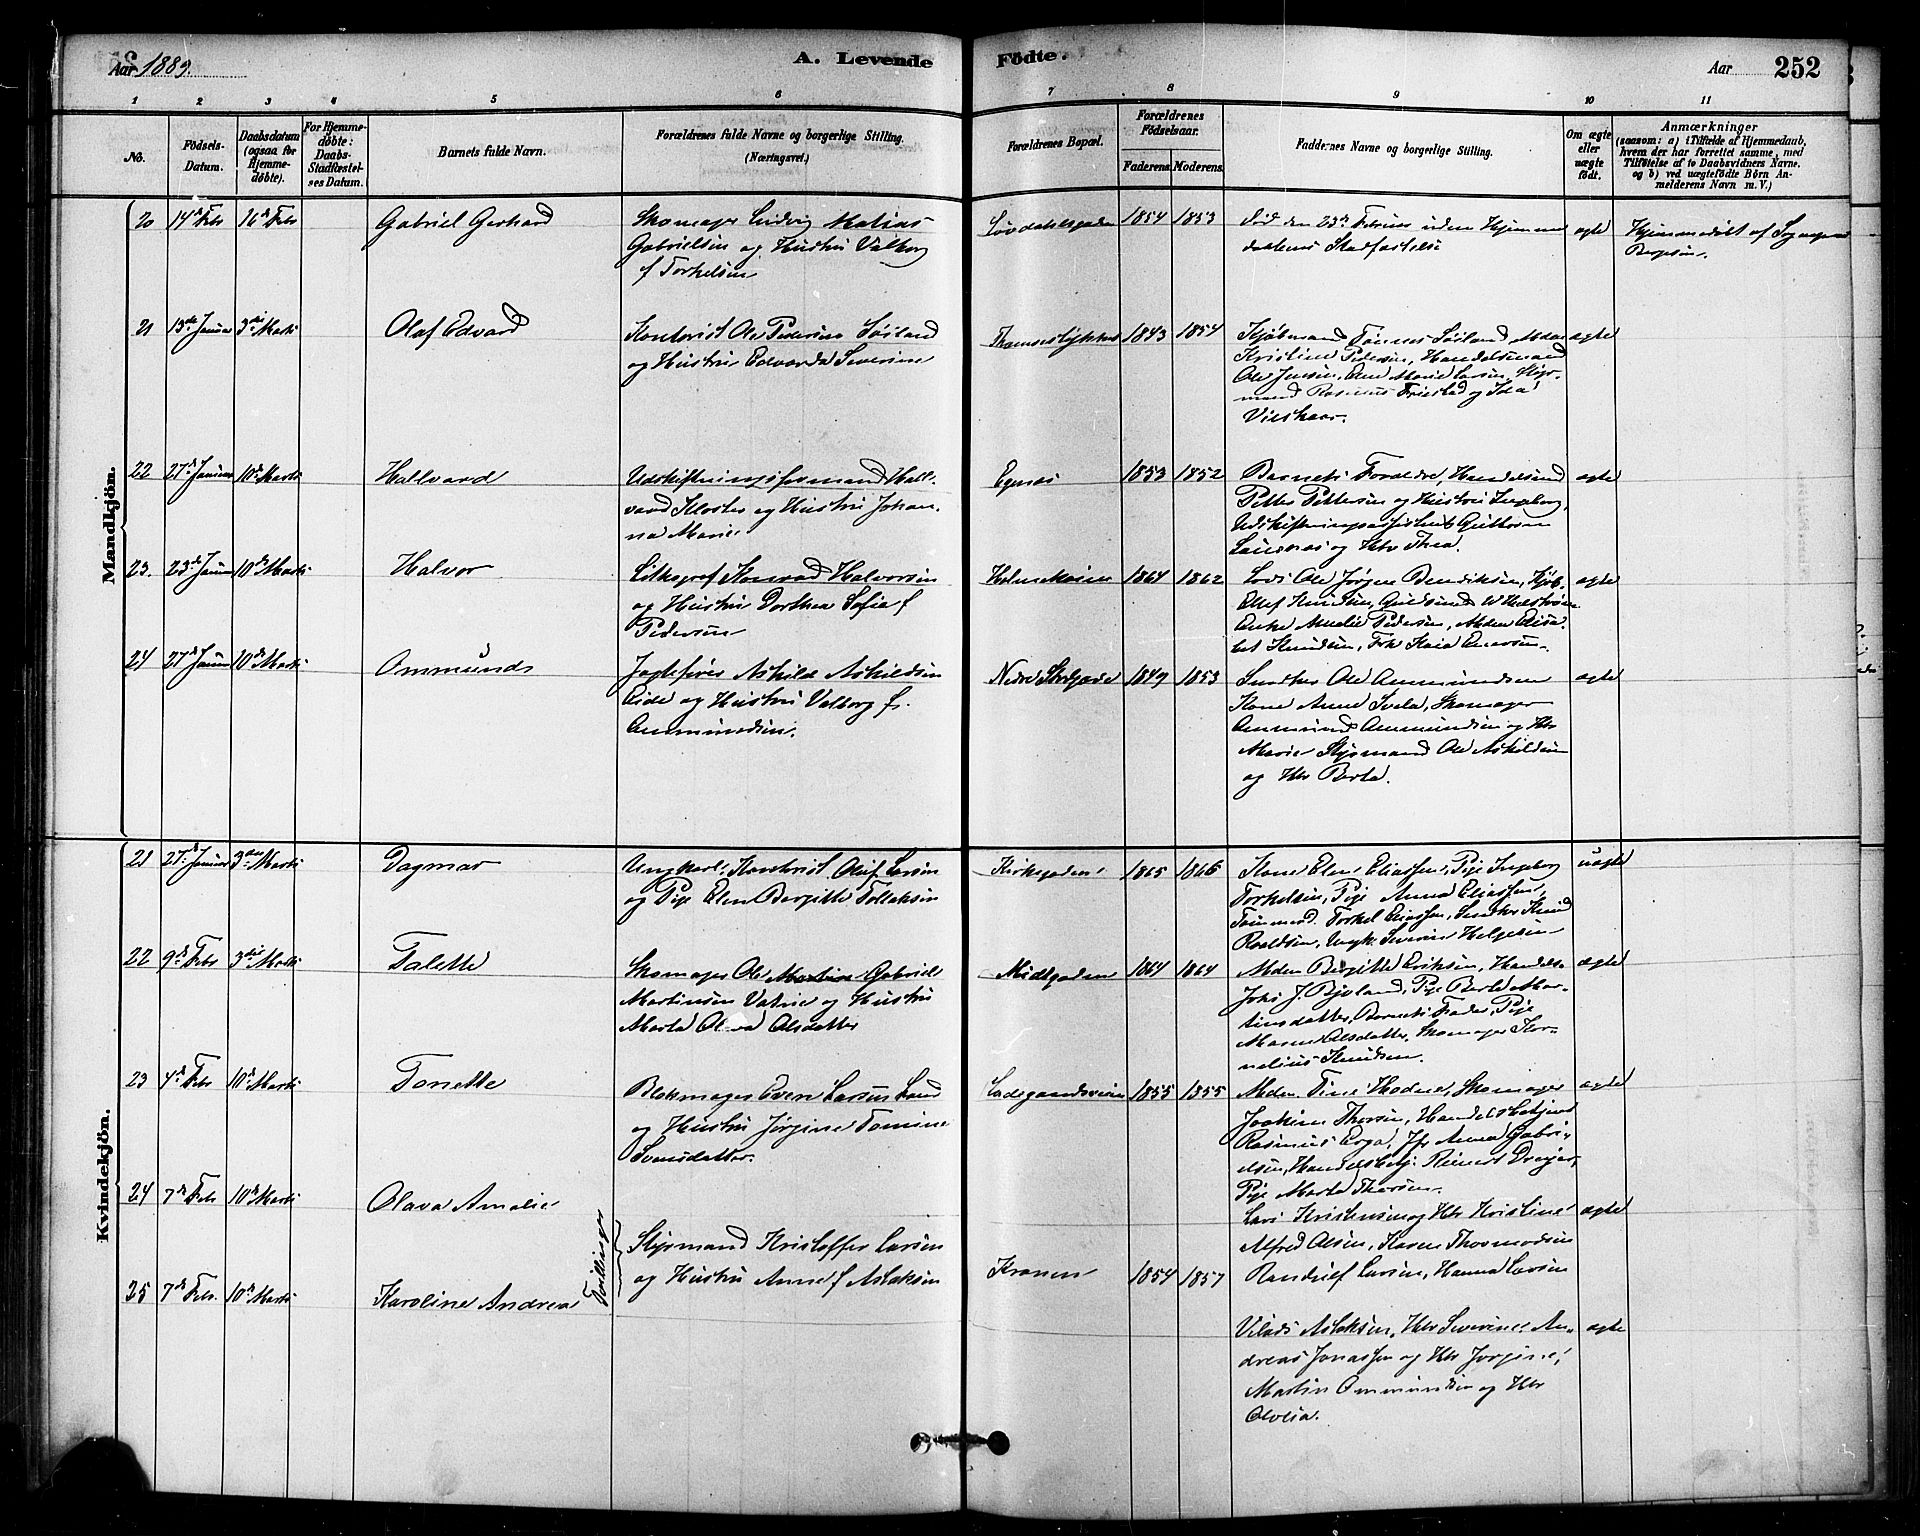 Aar 1889.
A. Levende
Födte.
Aar 252
1 2 3 4 5 6 7 8 9 10 11
No.
Födsels-
Datum.
Daabsdatum
(ogsaa for
Hjemme-
døbte).
For Hjemme-
døbte:
Daabs-
Stadfæstel-
ses Datum.
Barnets fulde Navn.
Forældrenes fulde Navne og borgerlige Stilling.
(Næringsvei.)
Forældrenes Bopæl.
Forældrenes
Födselsaar.
Faderens. Moderens.
Faddernes Navne og borgerlige Stilling.
Om ægte
eller
uægte
födt.
Anmærkninger
(saasom: a) i Tilfælde af Hjemmedaab,
hvem der har forrettet samme, med
Tilføielse af to Daabsvidners Navne.
og b) ved uægtefödte Börn An-
melderens Navn m. V.)
Mandkjön.
20 14de Febr 16de Febr Gabriel Gerhard
Skomager Ludvig Matias
Gabrielsen og Hustru Valborg
f Torkelsen
Løvdahlsgaden 1854 1853
Død den 23de Februar uden Hjemme
daabens Stadfæstelse
ægte
Hjemmedøbt af Sognepr
Bergesen.
21 13de Januar 3die Marts Olaf Edvard
Kontorist Ole Pedersen Sørland
og Hustru Edvarda Severine
1843 1854
Kjøbmand Tønnes Sørland, Mdm
Kristine Pedersen, Handelsmand
Ole Jensen, Ane Marie Larsen, Styr-
mand Rasmus Friestad og Ida
ægte
22 27de Januar 10de Marts Hallvard
Udskiftningsformand Hall-
vard Kloster og Hustru Johan-
na Marie
Egenæs 1853 1852
Barnets Forældre, Handelsmd
Petter Pettersen og Hustru Ingeborg,
Udskiftningsassistent Guttorm
og Htr Thea.
ægte
23. 23de Januar 10de Marts Halvor
Lithograf Konrad Halvorsen
og Hustru Dorthea Sofie f
Pedersen
Holmekaien 1864 1862
Lods Ole Jørgen Bendiksen, Kjøb.
Ellef Knudsen, Guldsmed
Enke Amalie Pedersen, Mdm Elisa-
bet Knudsen, Frk Kaia Enersen.
ægte
24 27de Januar 10de Marts Ommund
Jagtefører Askild Askildsen
Eide og Hustru Valborg f.
Ommundsen.
Nedre Skolgade 1849 1853
Snedker Ole Ommundsen
Kone Anne Svela, Skomager
Ommund Ommundsen og Htr
Marie Styrmand Ole Askildsen
og Htr Berta.
ægte
Kvindekjön.
21 27de Januar 3die Marts Dagmar
Ungkarl, Kontorist Oluf Larsen
og Pige Elen Bergitte Tollaksen
Kirkegaden 1865 1866
Kone Elen Eliassen, Pige Ingeborg
Torkelsen, Pige Anna Eliassen,
Tømmerd. Torkel Eliassen, Snedker Knud
Roaldsen, Ungk. Severin Helgesen
uægte
22 9de Febr 3die Marts Talette
Skomager Ole Martin Gabriel
Martinsen Vatne og Hustru
Marta Olava Olsdatter
Midtgaden 1864 1864
Mdm Birgitte Eriksen, Handels-
Johs J. Bjeland, Pige Berte Mar-
tinsdatter, Barnets Fader, Pige
Maren Olsdatter, Skomager Kor-
nelius Knudsen.
ægte
23 4de Febr 10de Marts Tonette
Blokmager Even Larsen Lund
og Hustru Jørgine Tomine
Svensdatter.
Ladegaardsveien 1855 1855
Mdm Tine Hodne, Skomager
Joakim Thorsen, Handelsbetjent
Rasmus Erga, Jfr Anna Gabri-
elsen, Handelsbetj. Reinert Dreyer,
Pige Marta Thorsen.
ægte
24 7de Febr 10de Marts Olava Amalie
Tvillinger
Styrmand Kristoffer Larsen
og Hustru Anne f Aslaksen
Lars Kristensen og Htr Kristine
Alfred Olsen, Karen Thormodsen
Randulf Larsen, Hanna Larsen
ægte
25 7de Febr. 10de Marts Karoline Andrea
Kranen 1854 1857
Vilads Aslaksen, Htr Severine, An-
dreas Jonassen og Htr Jorgine,
Martin Ommundsen og Htr
Olvlia.
ægte